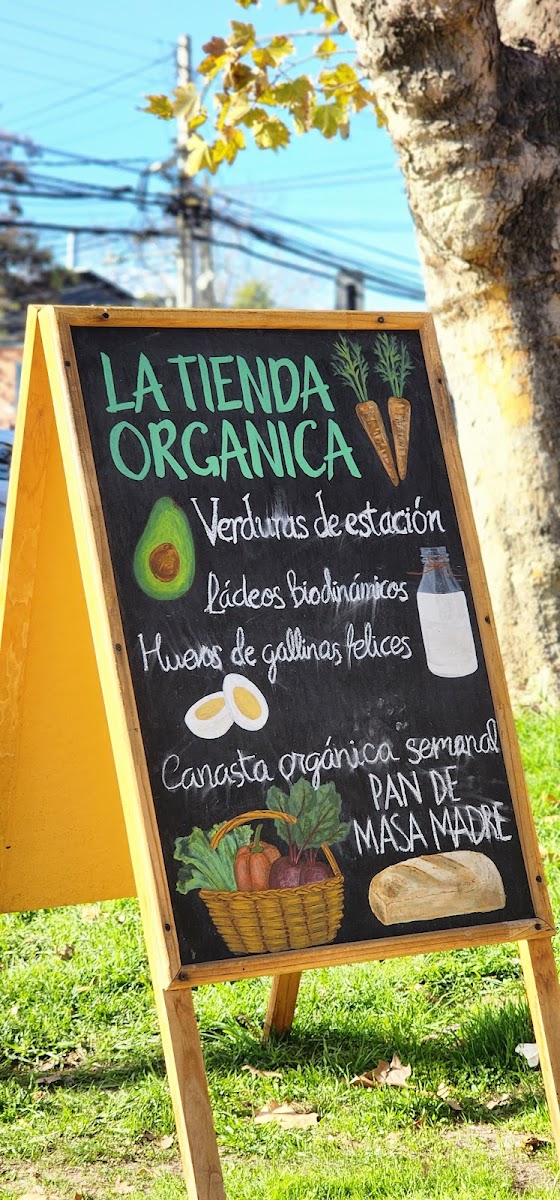 LA TIENDA
ORGANICA
Verduras de estación
Lácteos biodinámicos
Huevos de gallinas felices
Canasta orgánica semanal
PAN DE
MASA MADRE